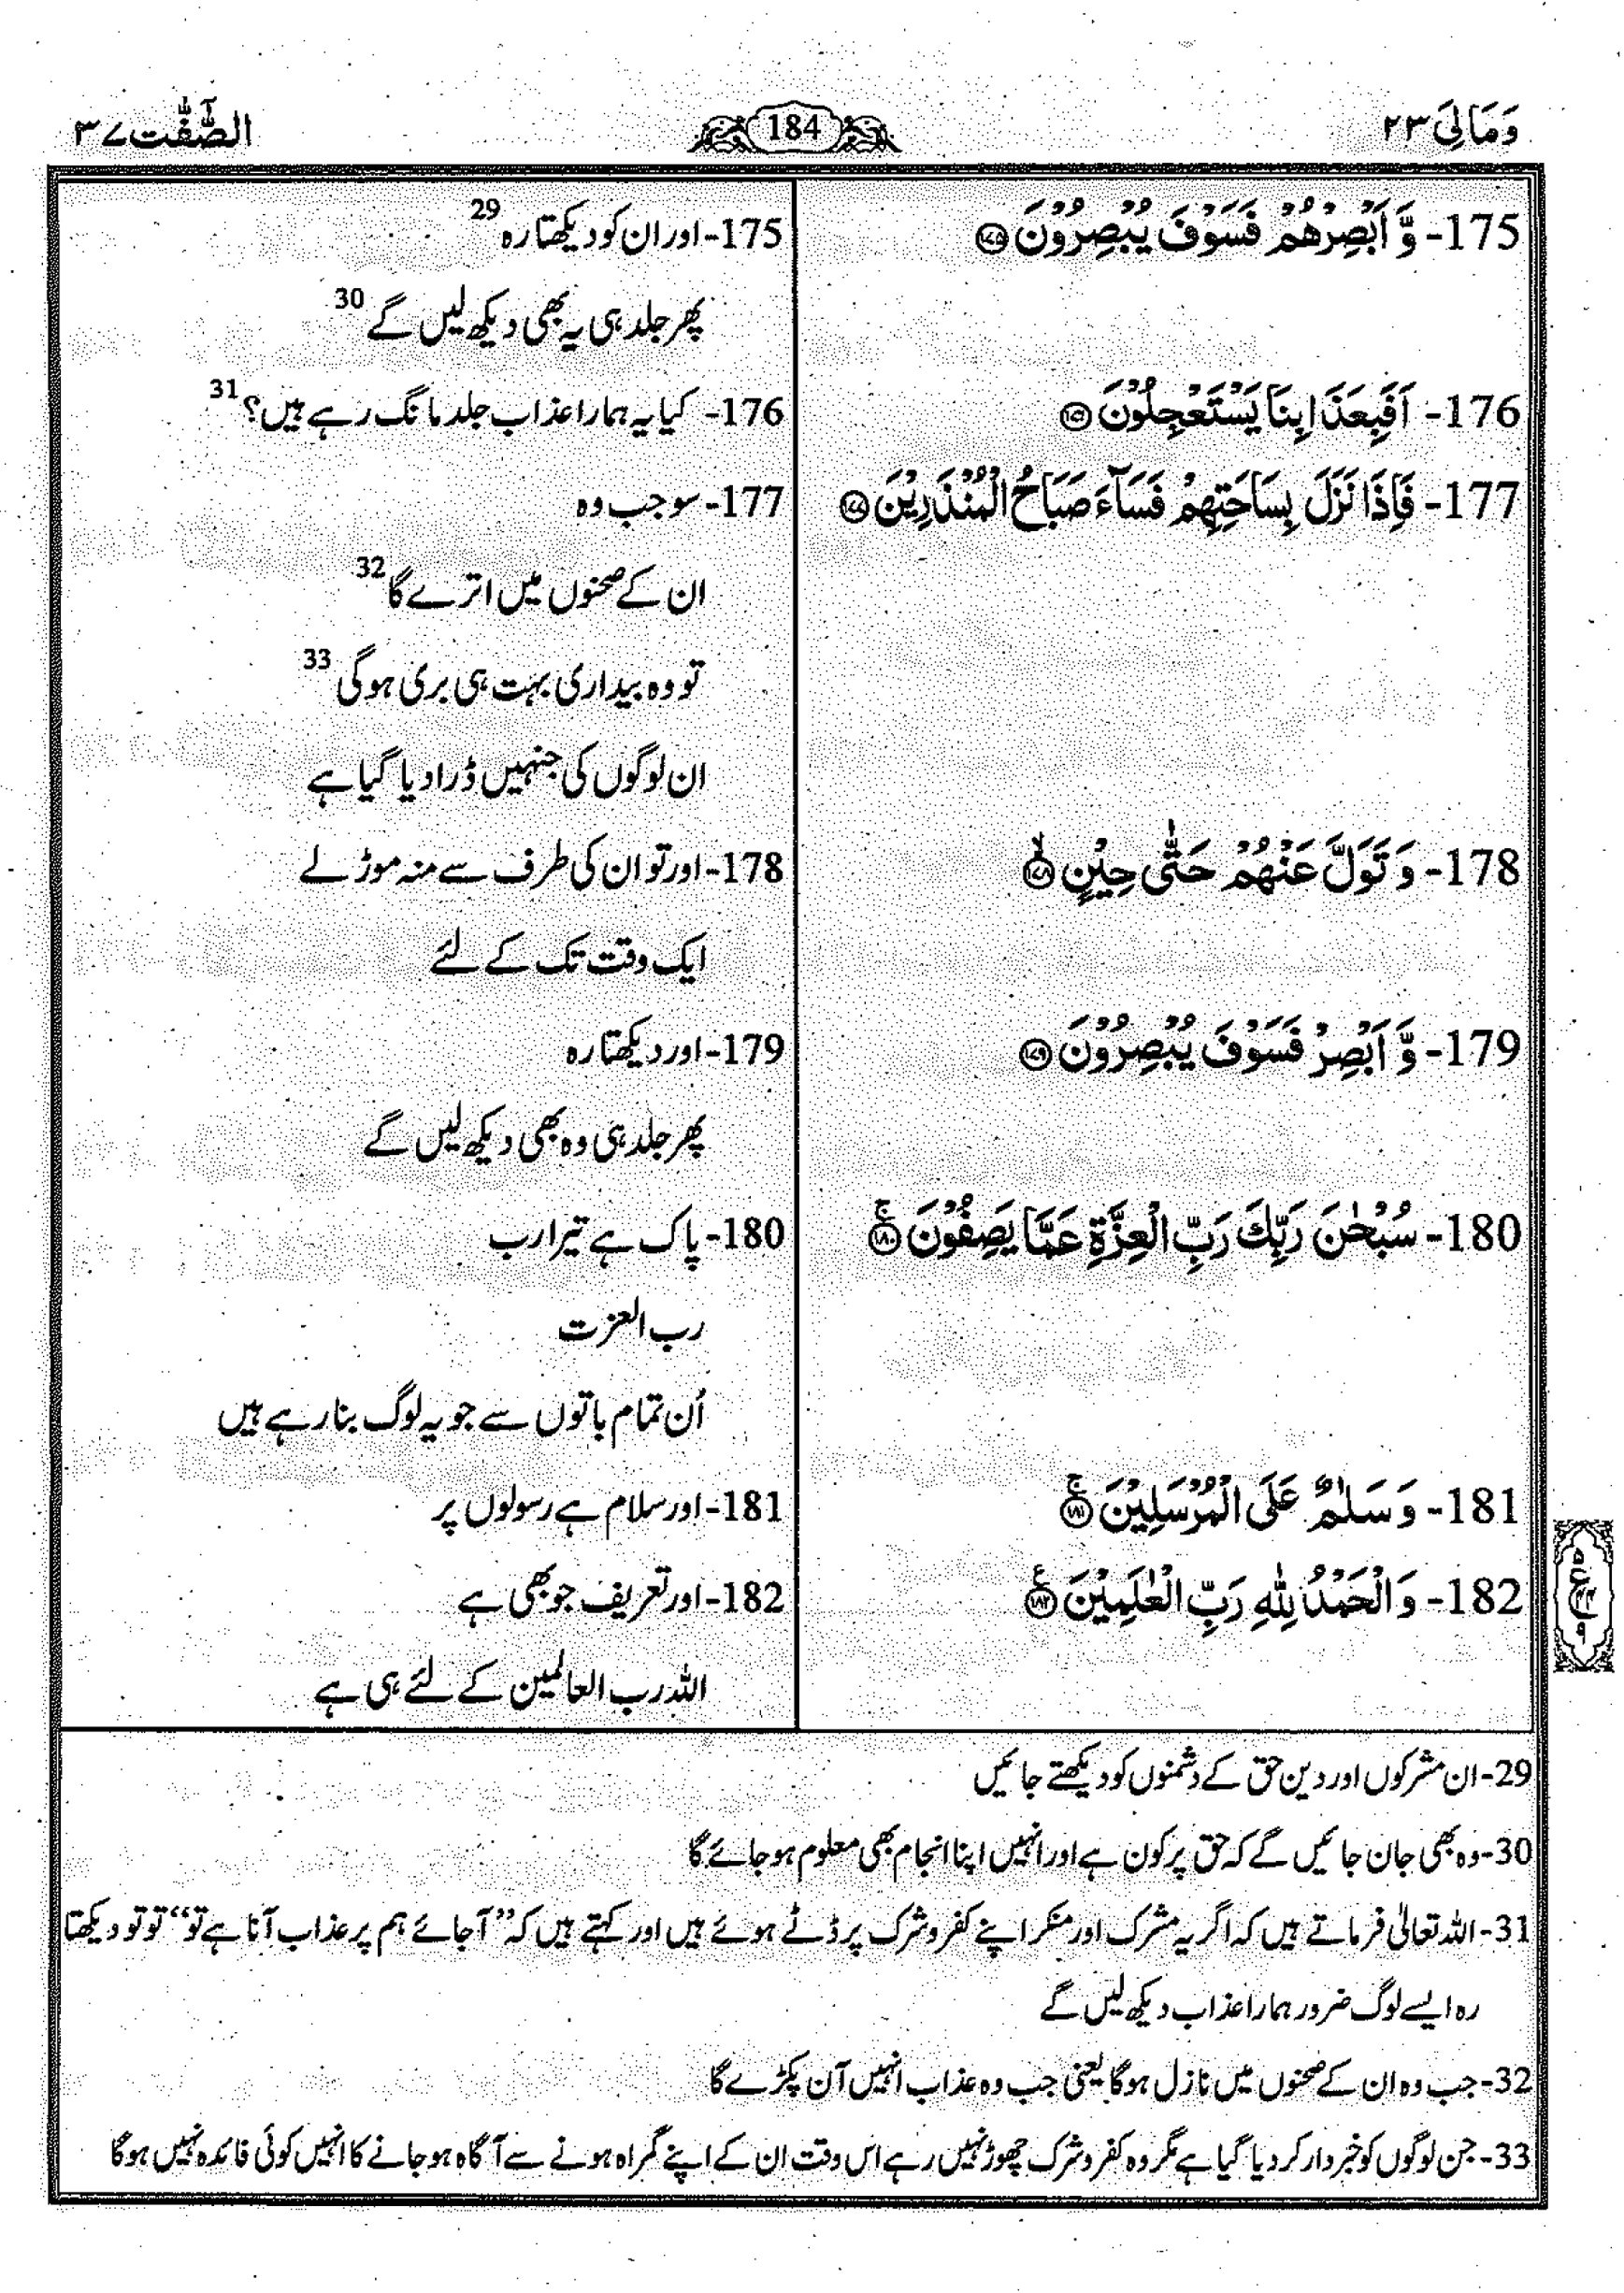 وَمَالِیَ ۲۳
184
الصّٰٓفّٰت ۳۷
175- وَّ اَبْصِرْهُمْ فَسَوْفَ یُبْصِرُوْنَ ﴿۱۷۵﴾
175- اور ان کو دیکھتا رہ 29
پھر جلد ہی یہ بھی دیکھ لیں گے 30
176- اَفَبِعَذَابِنَا یَسْتَعْجِلُوْنَ ﴿۱۷۶﴾
176- کیا یہ ہمارا عذاب جلد مانگ رہے ہیں؟ 31
177- فَاِذَا نَزَلَ بِسَاحَتِهِمْ فَسَآءَ صَبَاحُ الْمُنْذَرِیْنَ ﴿۱۷۷﴾
177- سو جب وہ
ان کے صحنوں میں اترے گا 32
تو وہ بیداری بہت ہی بری ہو گی 33
ان لوگوں کی جنہیں ڈرا دیا گیا ہے
178- وَ تَوَلَّ عَنْهُمْ حَتّٰی حِیْنٍ ﴿۱۷۸﴾ۙ
178- اور تو ان کی طرف سے منہ موڑ لے
ایک وقت تک کے لئے
179- وَّ اَبْصِرْ فَسَوْفَ یُبْصِرُوْنَ ﴿۱۷۹﴾
179- اور دیکھتا رہ
پھر جلد ہی وہ بھی دیکھ لیں گے
180- سُبْحٰنَ رَبِّكَ رَبِّ الْعِزَّةِ عَمَّا یَصِفُوْنَ ﴿۱۸۰﴾ۚ
180- پاک ہے تیرا رب
رب العزت
اُن تمام باتوں سے جو یہ لوگ بنا رہے ہیں
181- وَ سَلٰمٌ عَلَی الْمُرْسَلِیْنَ ﴿۱۸۱﴾ۚ
181- اور سلام ہے رسولوں پر
182- وَ الْحَمْدُ لِلّٰهِ رَبِّ الْعٰلَمِیْنَ ﴿۱۸۲﴾
182- اور تعریف جو بھی ہے
اللہ رب العالمین کے لئے ہی ہے
۵
ع
۴۴
۹
29- ان مشرکوں اور دین حق کے دشمنوں کو دیکھتے جائیں
30- وہ بھی جان جائیں گے کہ حق پر کون ہے اور انہیں اپنا انجام بھی معلوم ہو جائے گا
31- اللہ تعالیٰ فرماتے ہیں کہ اگر یہ مشرک اور منکر اپنے کفر و شرک پر ڈٹے ہوئے ہیں اور کہتے ہیں کہ ”آ جائے ہم پر عذاب آنا ہے تو“ تو تو دیکھتا
رہ ایسے لوگ ضرور ہمارا عذاب دیکھ لیں گے
32- جب وہ ان کے صحنوں میں نازل ہو گا یعنی جب وہ عذاب انہیں آن پکڑے گا
33- جن لوگوں کو خبردار کر دیا گیا ہے مگر وہ کفر و شرک چھوڑ نہیں رہے اس وقت ان کے اپنے گمراہ ہونے سے آگاہ ہو جانے کا انہیں کوئی فائدہ نہیں ہو گا